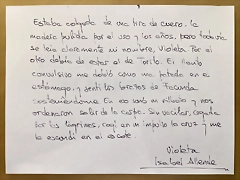 Estaba colgada de una tira de cuero, la
madera pulida por el uso y los años, pero todavía
se leía claramente mi nombre, Violeta. Por el
otro debía de estar el de Torito. El llanto
convulsivo me dobló como una patada en el
estómago, y sentí los brazos de Facunda
sosteniéndome. En eso and nos
ordenaron salir de la carpa. Sin vacilar, cegada
por las lágrimas, cogí en un impulso la cruz y me
la escondí en el escote.
Violeta
Isabel Allende